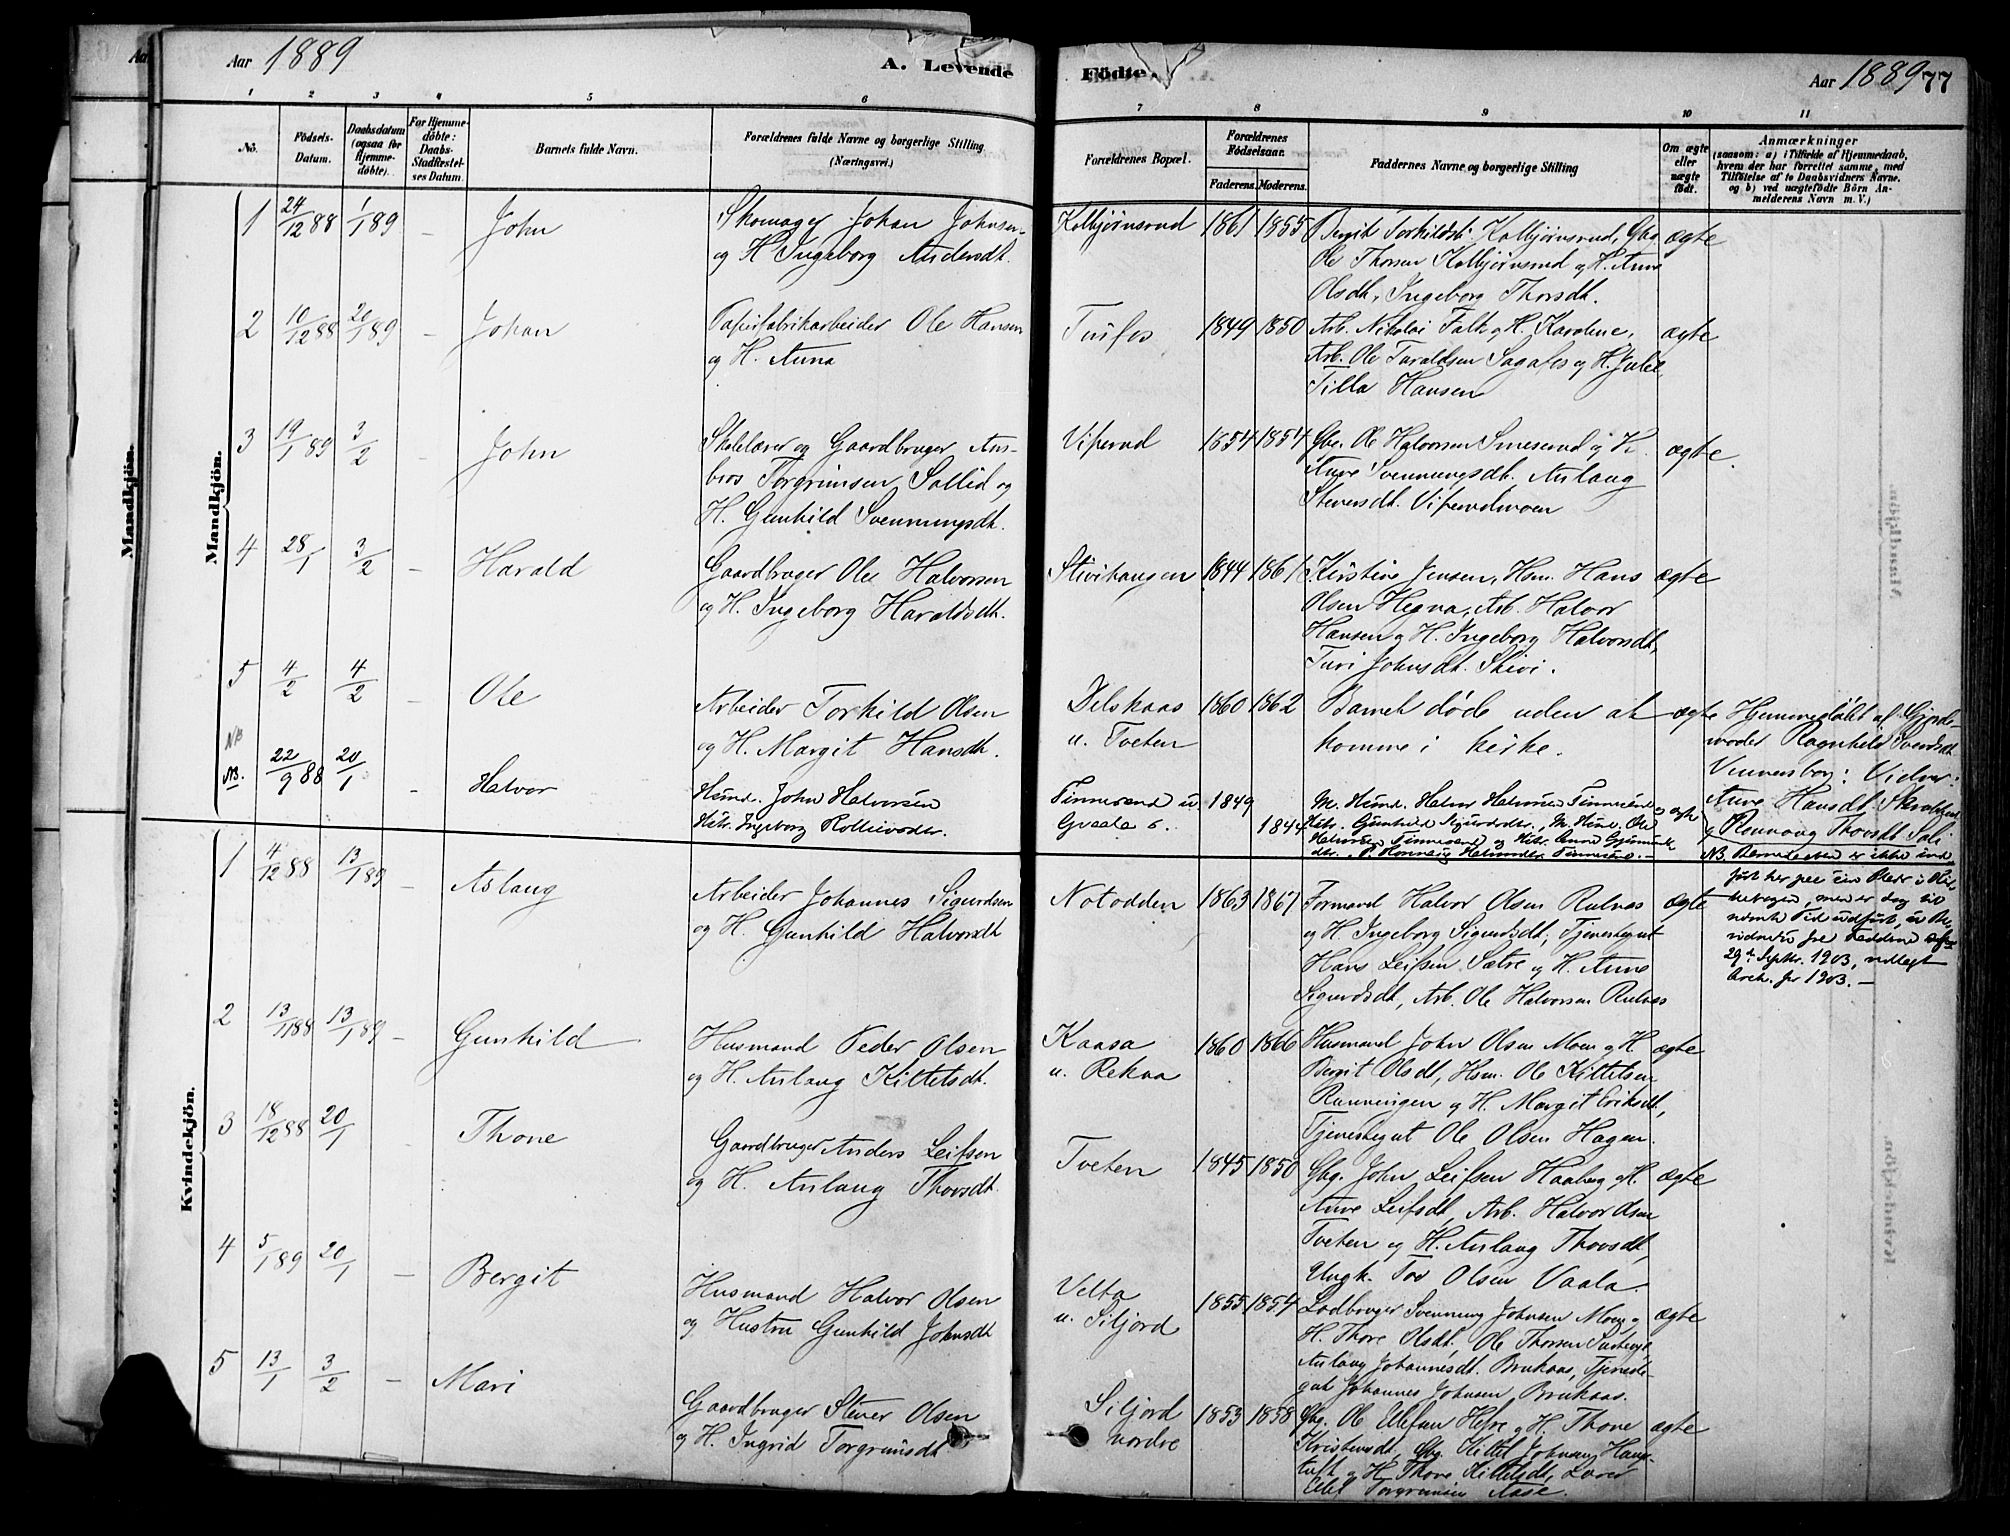 Aar 1889
A. Levende
Födte.
Aar 1889
77
1 2 3 4 5 6 7 8 9 10 11
No.
Födsels-
Datum.
Daabsdatum
(ogsaa for
Hjemme-
døbte).
For Hjemme-
döbte:
Daabs-
Stadfæstel-
ses Datum.
Barnets fulde Navn.
Forældrenes fulde Navne og borgerlige Stilling
(Næringsvei.)
Forældrenes Bopæl.
Forældrenes
Födselsaar.
Faderens.
Moderens.
Faddernes Navne og borgerlige Stilling
Om ægte
eller
uægte
födt.
Anmærkninger
(saasom: a) i Tilfælde af Hjemmedaab,
hvem der har forrettet samme, med
Tilföielse af to Daabsvidners Navne,
og b) ved uægtefödte Börn An-
melderens Navn m. V.)
Mandkjön.
Mandkjön.
1 24/12 88 1/1 89 - John
Skomager Johan Johnsen
og H Ingeborg Andersdt.
Kolbjørnsrud 1861 1855
Bergit Torkildsdt. Kolbjørnsrud, Gbg
Ole Thorsen Kolbjørnsrud og H. Anne
Olsdt, Ingeborg Thorsdt.
ægte
2 10/12 88 20/1 89 - Johan
Papirfabrikarbeider Ole Hansen
og H. Anna
Tinfos 1849 1850
Arb. Nikolai Falk og H. Karoline,
Arb. Ole Taraldsen Sagafos og H. Julie,
Tilla Hansen
ægte
3 19/1 89 3/2 John
Skolelærer og Gaardbruger Ans-
bros Torgrimsen Sallid og
H. Gunhild Svenningsdt.
Viperud 1854 1854
Gbg. Ole Halvorsen Smeserud og H.
Anne Svenningsdt. Aslaug
Steversdt. Viperudmoen
ægte.
4 28/1 3/2 - Harald
Gaardbruger Ole Halvorsen
og H. Ingeborg Haraldsdt.
Stivihaugen 1844 1861
Kirstine Jensen, Hsm. Hans
Olsen Hegna, Arb. Halvor
Hansen og H. Ingeborg Halvorsdt,
Turi Johnsdt. Skivi.
ægte
5 4/2 4/2 - Ole
Arbeider Torkild Olsen
og H. Margit Hansdt.
Delskaas
u. Tveten
1860 1862
Barnet døde uden at
komme i kirke.
ægte
Hjemmedøbt af Gjorde-
moder Ragnhild Svendsdt
Vinnersborg: Vidner:
Anne Hansdt.
og Rønnoug Thovsdt.
NB
NB. 22/9 88 20/1 - Halvor
Husmd. John Halvorsen
Hstr. Ingeborg
Tinnesand u.
1849
1844
M. Husmd. Halvor Halvorsen
Hstr. Gunhild Sigurdsdtr.
Halvorsen Tinnesand og Hstr. Anne
ægte
NB. er ikke ind-
ført her paa sin Plads i
29de Septbr. 1903, vedlagt
Arch. for 1903. —
Kvindekjön.
1 4/12 88 13/1 89 - Aslaug
Arbeider Johannes Sigurdsen
og H. Gunhild Halvorsdt
Notodden 1863 1861
Formand Halvor Olsen Rulnas
og H. Ingeborg Sigurdsdt, Tjenestegut
Hans Leifsen Sætre og H. Anne
Sigurdsdt, Arb. Ole Halvorsen Rulnas
ægte
2 13/11 88 13/1 89 - Gunhild
Husmand Peder Olsen
og H. Aslaug Kittelsdt.
Kaasa
u. Rekaa
1860 1866
Husmand John Olsen Moen og H
Bergit Olsdt, Hsm. Ole Kittelsen
Rønningen og H. Margit Eriksdt,
Tjenestegut Ole Olsen Hagen.
ægte
3 18/12 88 20/1 Thone
Gaardbruger Anders Leifsen
og H. Aslaug Thovsdt.
Tveten 1845 1850
Gbg. John Leifsen Haaberg og H.
Anne Leifsdt, Arb. Halvor Olsen
Tveten og H. Aslaug Thovsdt,
Ungk. Tov Olsen Vaala.
ægte
4 5/1 89 20/1 - Bergit
Husmand Halvor Olsen
og Hustru Gunhild Johnsdt
Velta
u. Siljord
1855 1854
Ladbruger Svenning Johnsen Moen og
H. Thore Olsdt. Ole Thorsen
Aslaug Johannesdt. Brukaas, Tjeneste-
gut Johannes Johnsen Brukaas.
ægte
5 13/1 3/2 - Mari
Gaardbruger Stener Olsen
og H. Ingrid Torgrimsdt
Siljord
nordre
1853 1858
Gbg. Ole Ellefsen Hefre og H. Thone
Kristensdt, Gbg. Kittel Johnsen Haug-
tuft og H. Thone Kittelsdt,
Torgrimsen Aase.
ægte